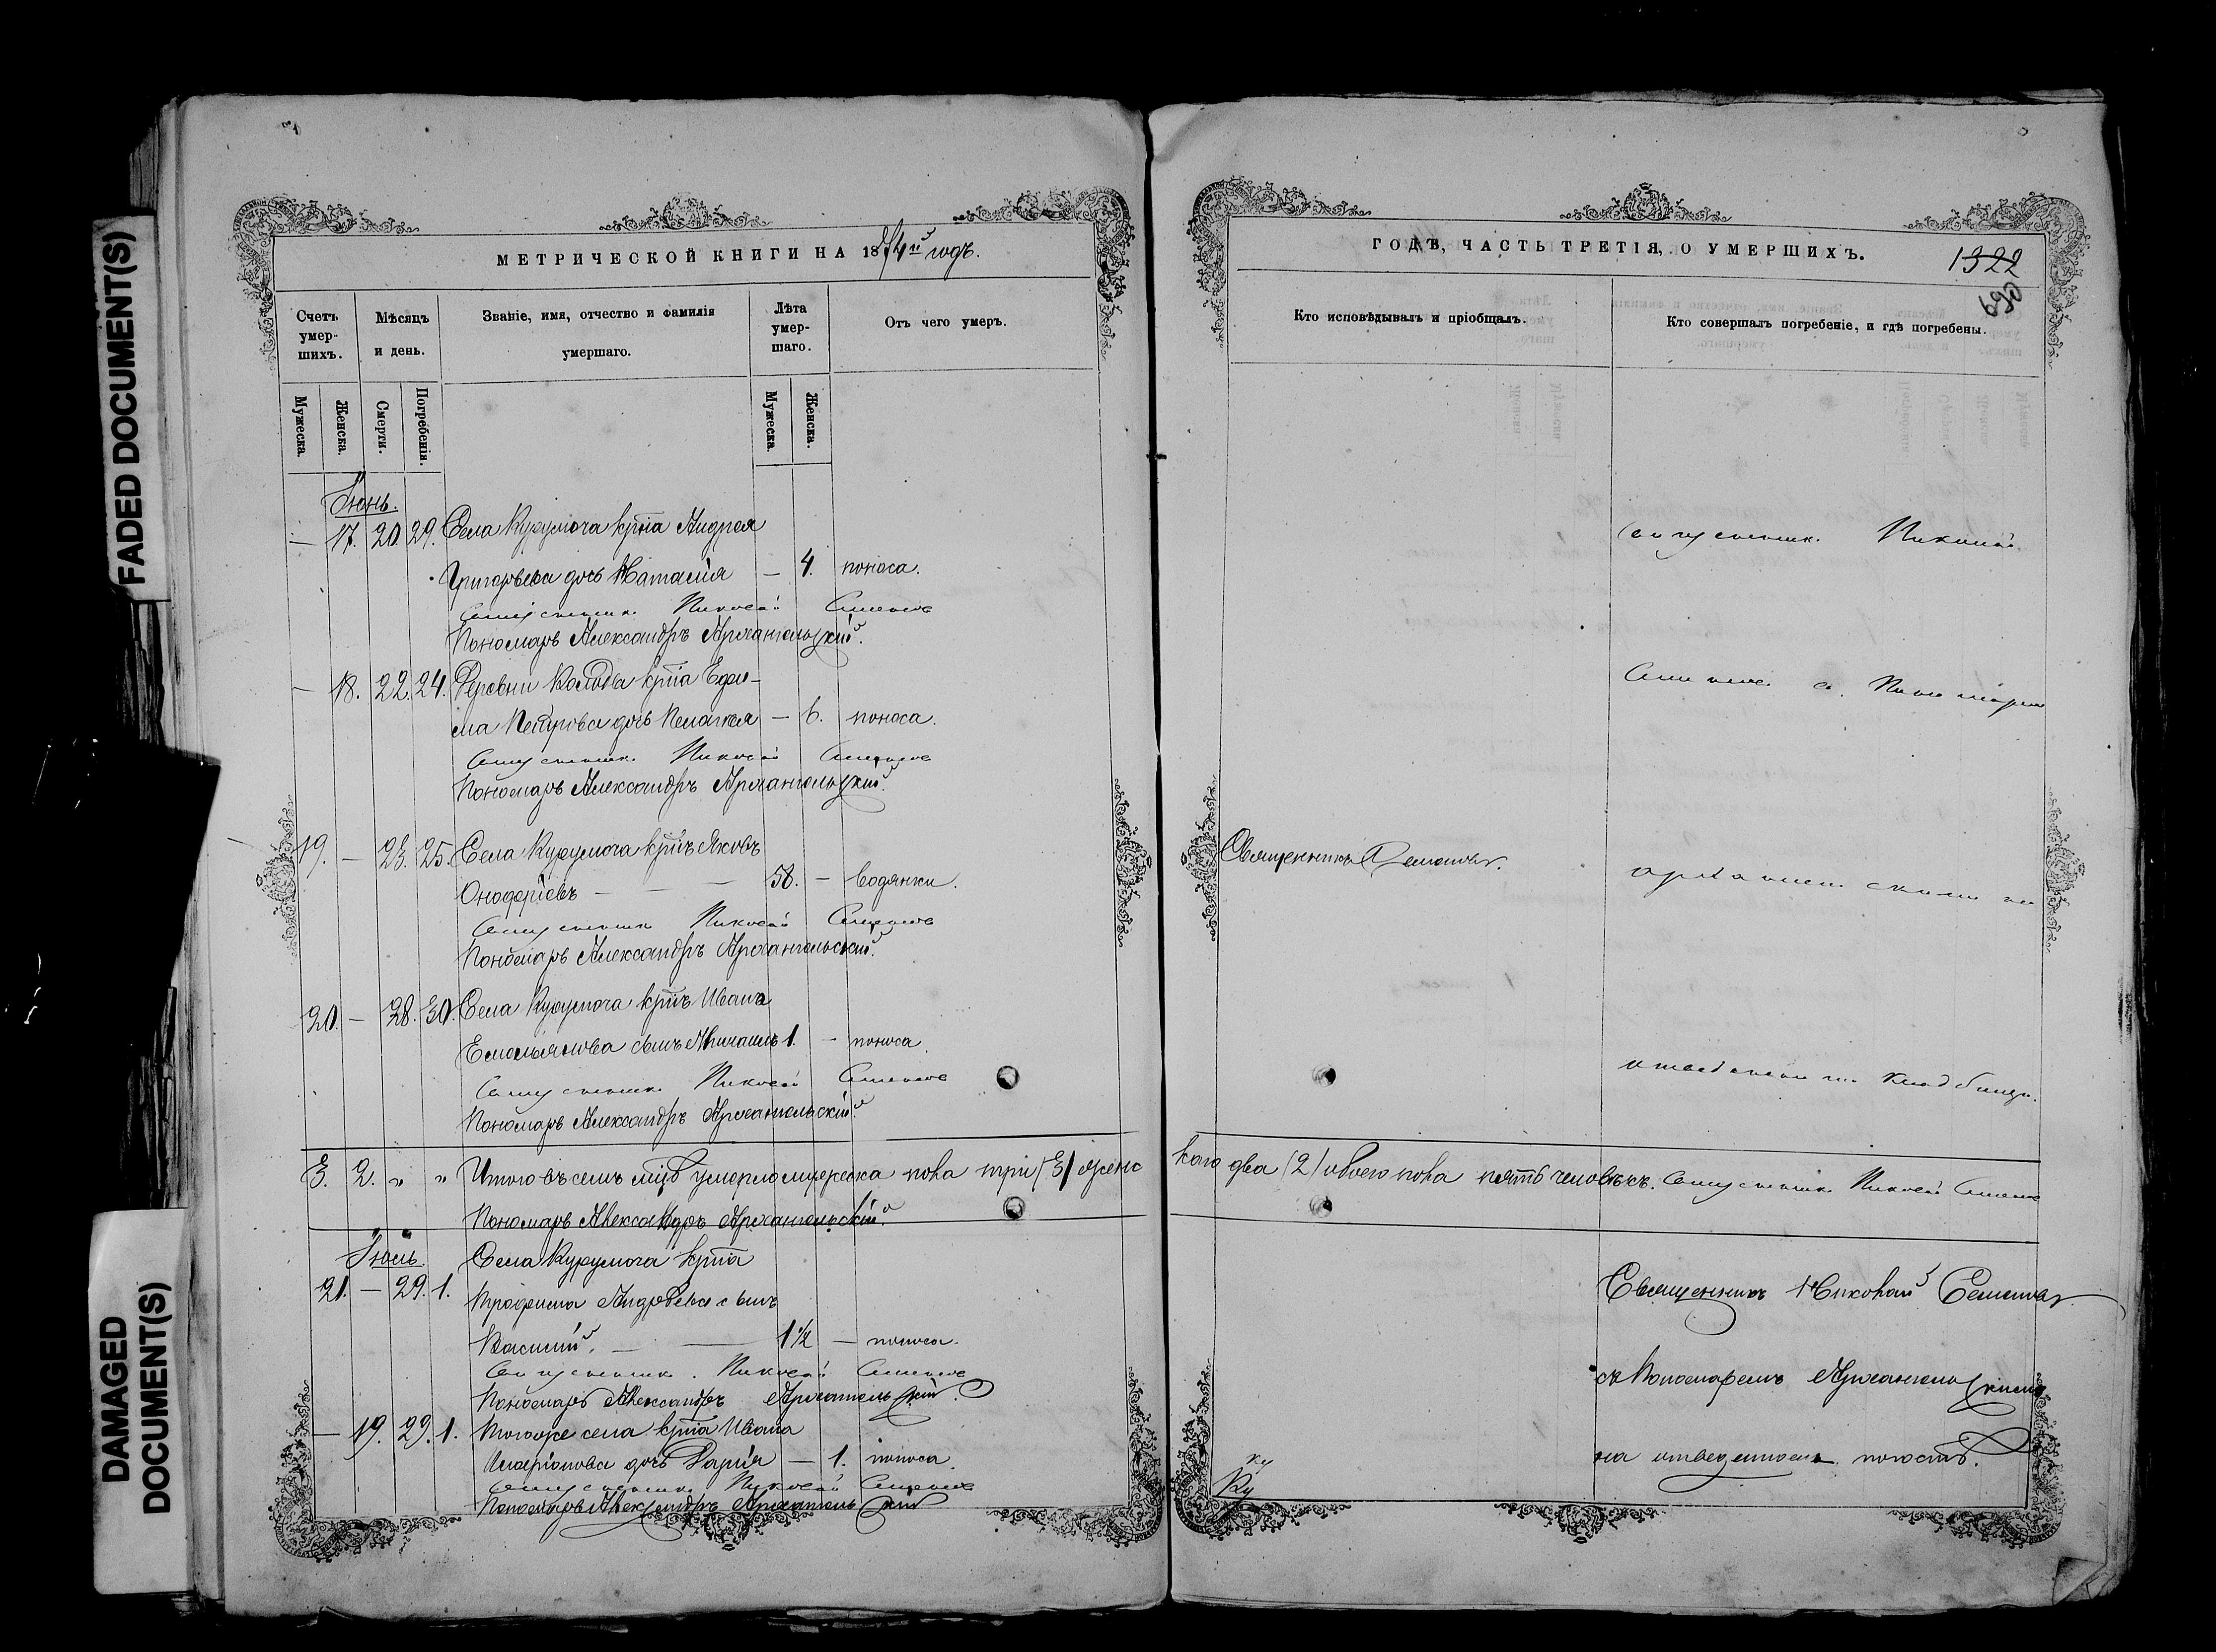 МЕТРИЧЕСКОЙ КНИГИ НА 1874й годъ.
Счетъ умер-шихъ.
Мѣсяцъ и день.
Званіе, имя, отчество и фамилія умершаго.
Лѣта умер-шаго.
Отъ чего умеръ.
Мужеска.
Женска.
Смерти.
Погребенія.
Мужеска
Женска.
Іюнь.
— 17. 20. 29. Села Курумоча крта Андрея
Григорьева дочь Наталія — 4. поноса.
Священникъ Николай Семеновъ
Пономарь Александръ Архангельскій.
— 18. 22. 24. Деревни крта Ефи-
ма Петрова дочь Пелагея — 6. поноса.
Священникъ Николай Семеновъ
Пономарь Александръ Архангельскій.
19. — 23. 25. Села Курумоча кртъ Яковъ
Онофріевъ — — 58. — водянки.
Священникъ Николай Семеновъ
Пономарь Александръ Архангельскій.
20. — 28. 30. Села Курумоча Ивана
Емельянова сынъ Михаилъ 1. — поноса.
Священникъ Николай Семеновъ
Пономарь Александръ Архангельскій.
3. 2. „ „ Итого въ семъ мцѣ умерло мужеска пола три (3) женс
Пономарь Александръ Архангельскій.
Іюль
21. — 29. 1. Села Курумоча крта
Андреева сынъ
Василій. — — 1½ — поноса.
Священникъ Николай Семеновъ
Пономарь Александръ Архангельскій.
— 19. 29. 1. Тогоже села крта Ивана
Иларіонова дочь Дарія — 1. поноса
Священникъ Николай Семеновъ
Пономарь Александръ Архангельскій
ГОДЪ, ЧАСТЬ ТРЕТІЯ, О УМЕРШИХЪ.
1322
690
Кто исповѣдывалъ и пріобщалъ.
Кто совершалъ погребеніе, и гдѣ погребены.
Священникъ Николай
Семеновъ съ Пономаремъ
Священникъ Семеновъ.
Архангельскимъ на
отведенномъ кладбищѣ.
каго два (2) обоего пола пять человѣкъ. Священникъ Николай Семеновъ
Священникъ Николай Семеновъ
съ Пономаремъ Архангельскимъ
на отведенномъ погостѣ.
Ку
Ку